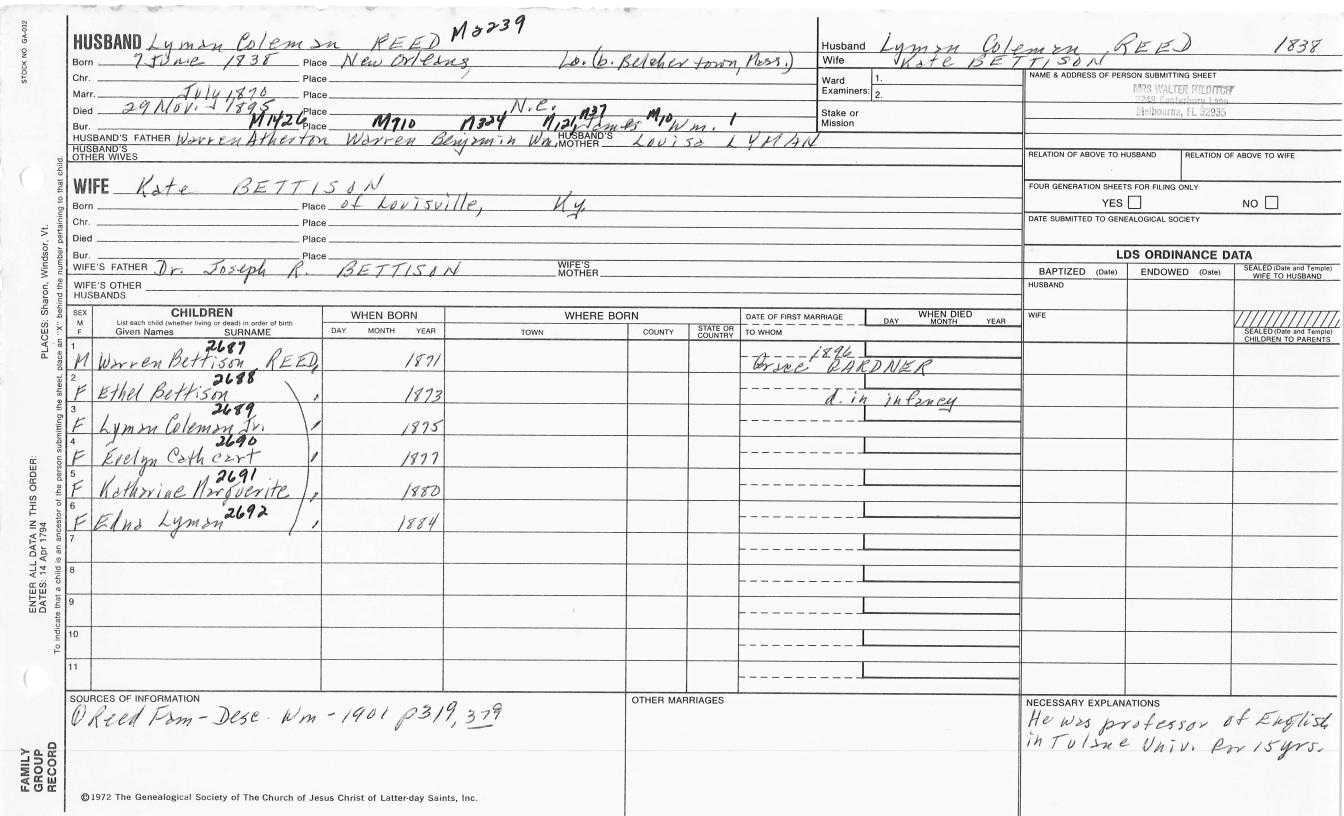 STOCK NO. GA-032
HUSBAND Lyman Coleman REED M2239
Born 7 June 1838 Place New Orleans, La. (b. Belchertown, Mass.)
Chr. Place
Marr. July 1870 Place
Died 29 Nov. 1895 Place N.C.
Bur. M1426 Place M710 M324 M121 M37 James M10 Wm. 1
HUSBAND'S FATHER Warren Atherton Warren Benjamin Wm, HUSBAND'S MOTHER Louisa LYMAN
HUSBAND'S OTHER WIVES
Husband Lyman Coleman REED 1838
Wife Kate BETTISON
Ward Examiners: 1.
2.
Stake or Mission
NAME & ADDRESS OF PERSON SUBMITTING SHEET
MRS WALTER
Canterbury Lane
Melbourne, FL 32935
RELATION OF ABOVE TO HUSBAND RELATION OF ABOVE TO WIFE
FOUR GENERATION SHEETS FOR FILING ONLY
YES NO
DATE SUBMITTED TO GENEALOGICAL SOCIETY
WIFE Kate BETTISON
Born Place of Louisville, Ky.
Chr. Place
Died Place
Bur. Place
WIFE'S FATHER Dr. Joseph R. BETTISON WIFE'S MOTHER
WIFE'S OTHER HUSBANDS
LDS ORDINANCE DATA
BAPTIZED (Date) ENDOWED (Date) SEALED (Date and Temple) WIFE TO HUSBAND
HUSBAND
WIFE
SEALED (Date and Temple) CHILDREN TO PARENTS
SEX M F
CHILDREN
List each child (whether living or dead) in order of birth
Given Names SURNAME
WHEN BORN
DAY MONTH YEAR
WHERE BORN
TOWN COUNTY STATE OR COUNTRY
DATE OF FIRST MARRIAGE
TO WHOM
WHEN DIED
DAY MONTH YEAR
1 2687 1896
M Warren Bettison REED, 1871 Grace GARDNER
2 2688
F Ethel Bettison , 1873 d. in infancy
3 2689
F Lyman Coleman Jr. , 1875
4 2690
F Evelyn Cathcart , 1877
5 2691
F Katharine Marguerite , 1880
6 2692
F Edna Lyman , 1884
7
8
9
10
11
SOURCES OF INFORMATION
① Reed Fam - Desc. Wm - 1901 p319, 379
OTHER MARRIAGES
NECESSARY EXPLANATIONS
He was professor of English
in Tulane Univ. for 15 yrs.
©1972 The Genealogical Society of The Church of Jesus Christ of Latter-day Saints, Inc.
FAMILY GROUP RECORD
ENTER ALL DATA IN THIS ORDER:
DATES: 14 Apr 1794
PLACES: Sharon, Windsor, Vt.
To indicate that a child is an ancestor of the person submitting the sheet, place an "X" behind the number pertaining to that child.